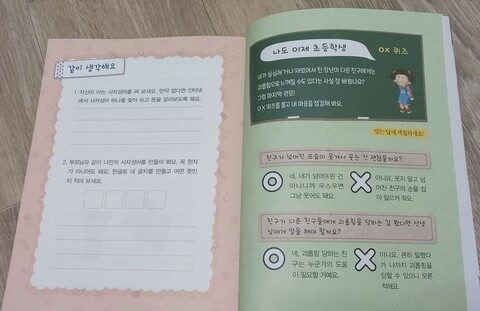 같이 생각해요
1. 자신이 아는 사자성어를 써 보세요. 만약 없다면 인터넷
에서 사자성어 하나를 찾아 쓰고 뜻을 알아보도록 해요.
2. 부모님과 같이 나만의 사자성어를 만들어 봐요. 꼭 한자
가 아니어도 돼요. 한글로 네 글자를 만들고 어떤 뜻인
지 적어 보세요.
나도 이제 초등학생
OX 퀴즈
내가 심심하거나 재밌어서 친 장난이 다른 친구에게는
괴롭힘으로 느껴질 수도 있다는 사실 잘 봤나요?
그럼 마지막 관문!
OX 퀴즈를 풀고 내 마음을 점검해 봐요.
맞는 답에 색칠하세요!
친구가 넘어진 모습이 웃겨서 웃는 건 괜찮을까요?
O
네, 내가 넘어뜨린 건
아니니까 우스우면
그냥 웃어도 돼요.
X
아니요. 웃지 말고 넘
어진 친구의 손을 잡
아 일으켜 줘요.
친구가 다른 친구들에게 괴롭힘을 당하는 걸 봤다면 선생
님에게 말을 해야 할까요?
O
네, 괴롭힘 당하는 친
구는 누군가의 도움
이 필요할 거예요.
X
아니요. 괜히 말했다
가 나까지 괴롭힘을
당할 수 있으니 모른
척해요.